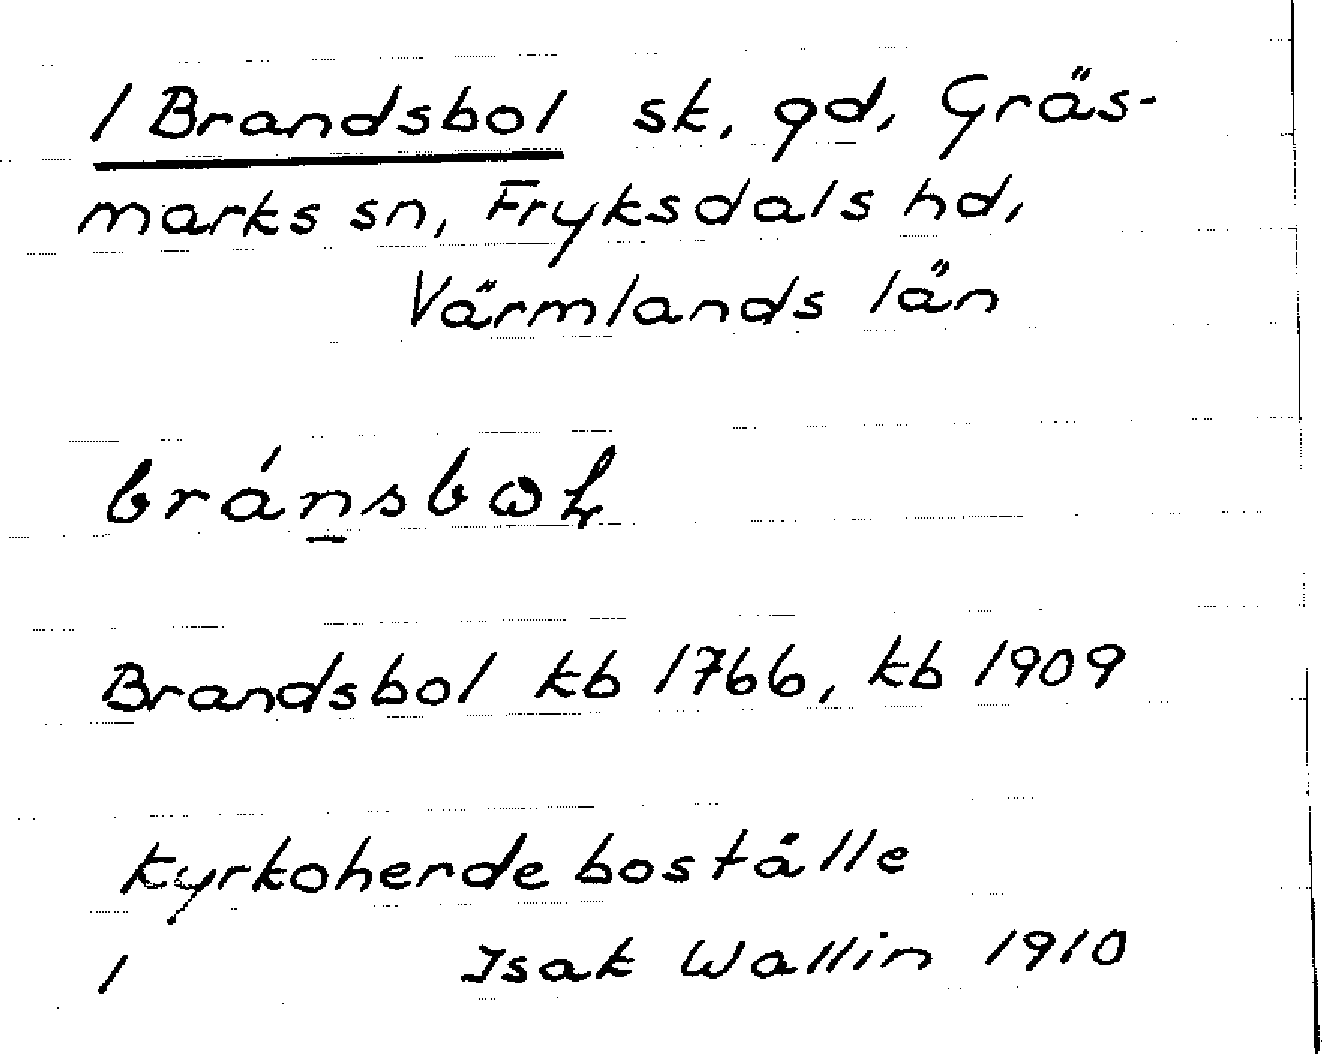 1 Brandsbol sk. gd, Gräs-
marks sn, Fryksdals hd,
Värmlands län
bránsbωɫ
Brandsbol kb 1766, kb 1909
Kyrkoherdeboställe
1 Isak Wallin 1910